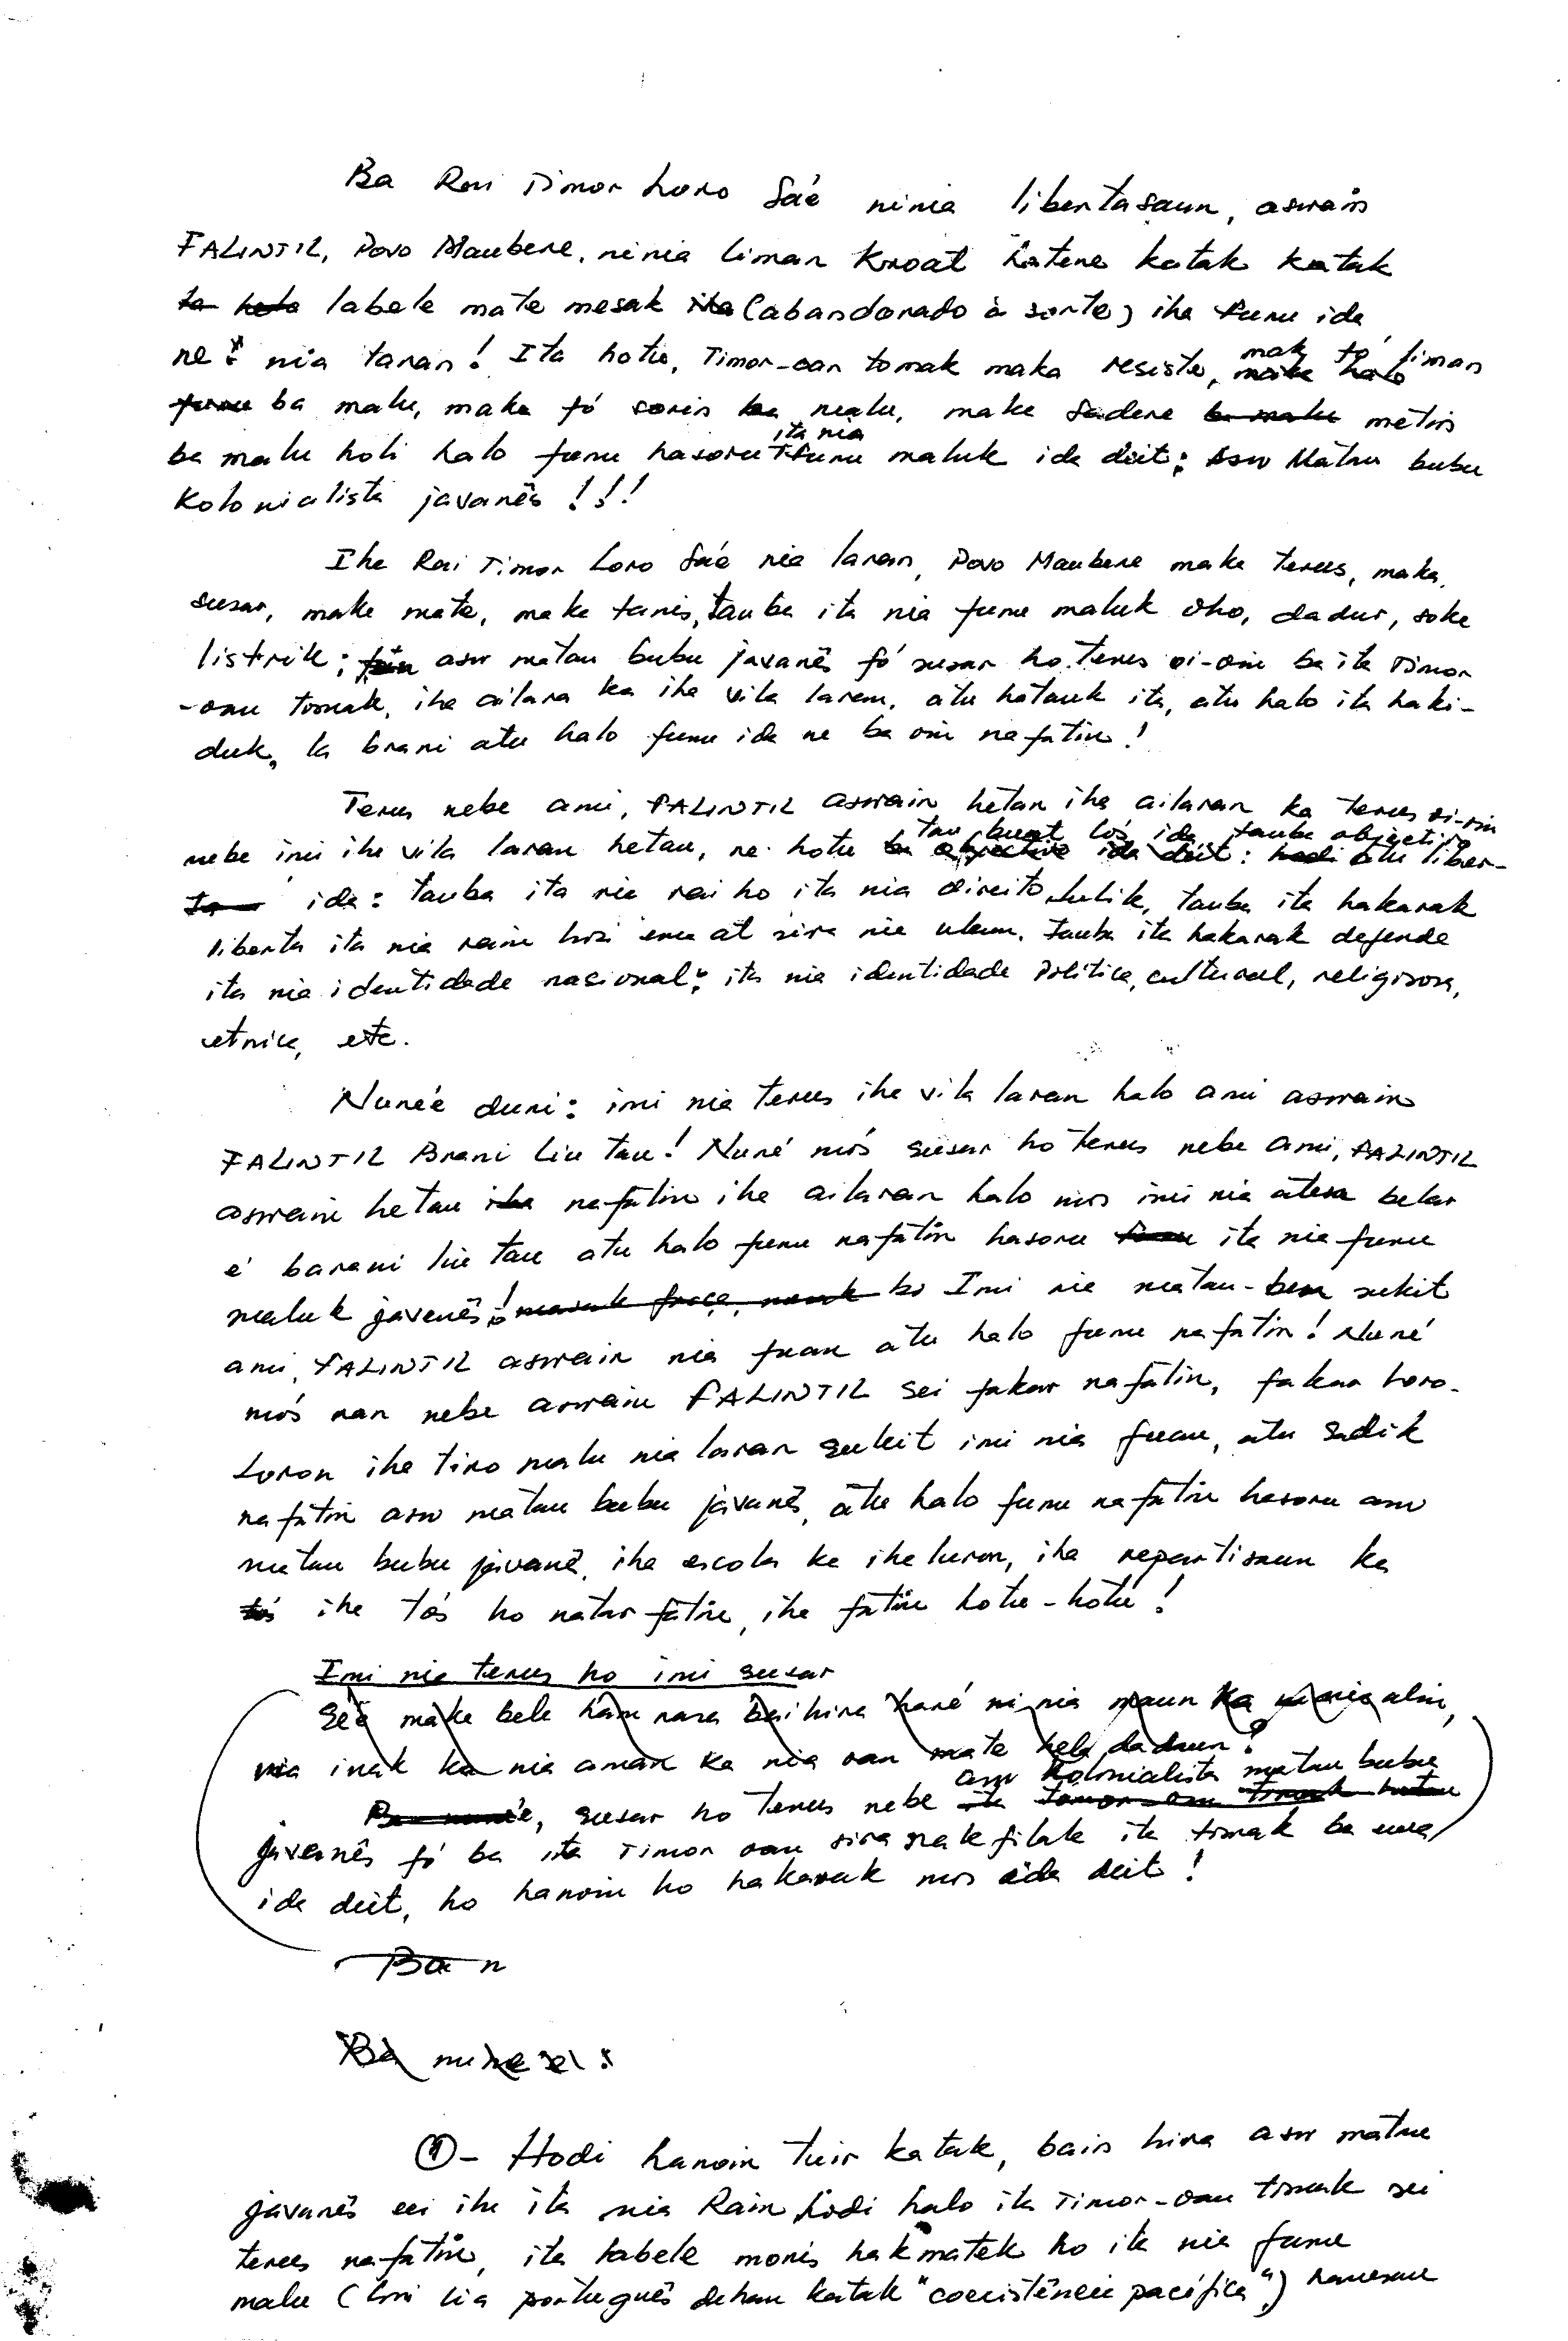 Ba Rai Timor Loro Sá'e ninia libertasaun, aswain
FALINTIL, Povo Maubere, ninia liman kroat hatene katak katak
labele mate mesak (abandonado à sorte) ihe funu ida
ne' nia laran! Ita hotu, Timor-oan tomak maka resiste, mak fó liman
ba malu, maka fó sorin ba malu, maka sadere metin
ba malu hodi halo funu hasoru ita nia funu maluk ida deit: asu Mátan bubu
Kolonialista javanês!!!
Ihe Rai Timor Loro Sá'e nia laran, Povo Maubere maka terus, maka
susar, maka mate, maka tanis, tauba ita nia funu maluk oho, dadur, soke
listrik; asu mátan bubu javanês fó susar ho terus oi-oin ba ita Timor
-oan tomak, ihe ailara ka ihe vila laran, atu hatauk ita, atu halo ita haki-
duk, la brani atu halo funu ida ne ba oin nafatin!
Terus nebe ami, FALINTIL aswain hetan ihe ailaran ka terus oi-oin
nebe imi ihe vila laran hetan, ne hotu tau buat lós ida, tauba objectivo
ida: tauba ita nia rai ho ita nia direito lulik, tauba ita hakarak
liberta ita nia rain hosi ema at sira nia ukun. tauba ita hakarak defende
ita nia identidade nasional: ita nia identidade politica, cultural, religiosa,
etnica, etc.
Nune'é duni: imi nia terus ihe vila laran halo ami aswain
FALINTIL Brani liu tau! Nuné mós susar ho terus nebe ami, FALINTIL
aswain hetan nafatin ihe ailaran halo mos imi nia aten belar
é barani liu tau atu halo funu nafatin hasoru ita nia funu
maluk javanês! Imi nia matan-ben sukit
ami, FALINTIL aswain nia fuan atu halo funu nafatin! Nuné
mós ran nebe aswain FALINTIL sei fakar nafatin, fakar loro-
loron ihe tiro malu nia laran sukit imi nia fuan, atu sadik
nafatin asu mátan bubu javanês, atu halo funu nafatin hasoru asu
mátan bubu javanê, ihe escola ka ihe luron, ihe repartisaun ka
ihe tós ho natar fátin, ihe fátin hotu-hotu!
Imi nia terus ho imi susar
Sé'é maka bele hán nara bai hira haré ninia maun ka alin,
nia inak ka nia aman ka nia oan mate hela dadaun?
susar ho terus nebe asu Kolonialista mátan bubu
javanês fó ba ita Timor oan sira mak filak ita tomak ba uma
ida deit, ho hanoin ho hakarak mos ida deit!
Ba n
① - Hodi hanoin tuir katak, bain hira asu mátan
javanês sei ihe ita nia Rain hodi halo ita Timor-oan tomak sei
terus nafatin, ita labele moris hakmatek ho ita nia funu
malu (hosi lia português dehan katak "coexistência pacífica") hanesan